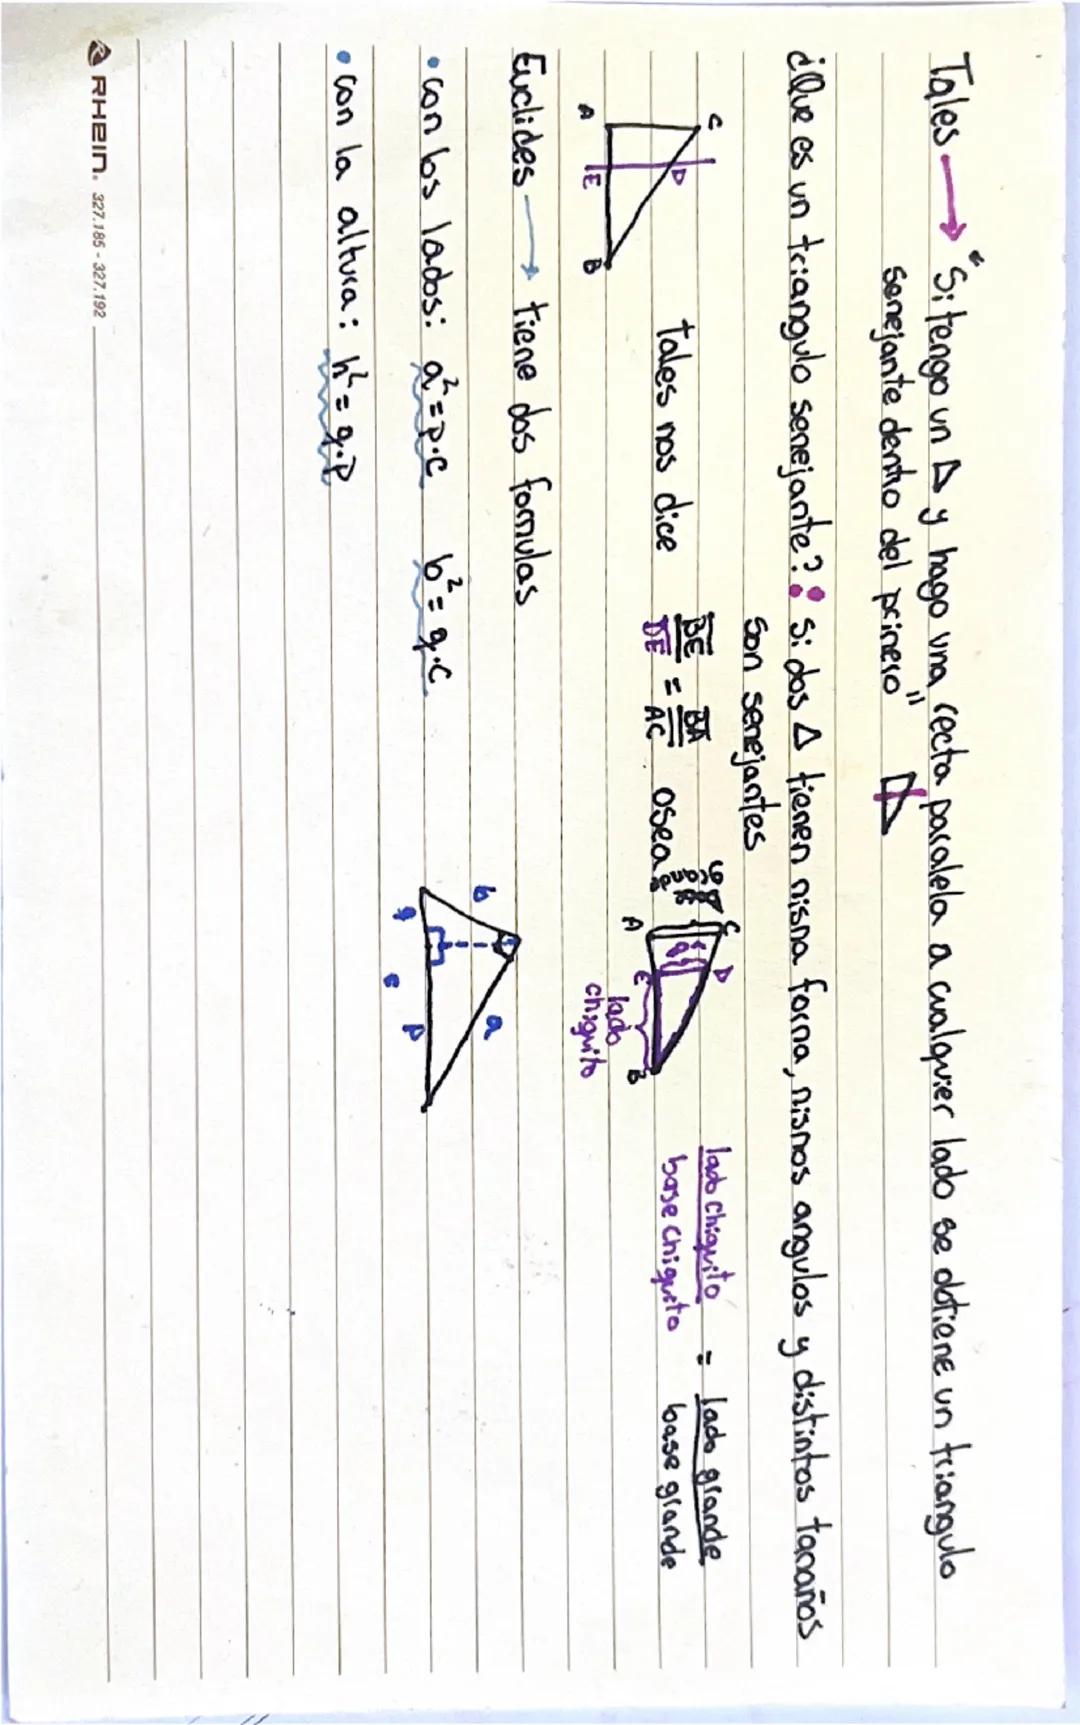 Tales → "Si tengo un △ y hago una recta paralela a cualquier lado se obtiene un triangulo
semejante dentro del primero"
¿Que es un triangulo semejante? : Si dos △ tienen misma forma, mismos angulos y distintos tamaños
son semejantes
C
D
A
E
B
tales nos dice BE/DE = BA/AC osea
C
D
A
E
B
lado
chiquito
lado chiquito / base chiquito = lado grande / base grande
Euclides → tiene dos formulas
• con los lados: a² = p.c b² = q.c
b
a
q
c
p
• con la altura: h² = q.p
RHEIN. 327.185 - 327.192